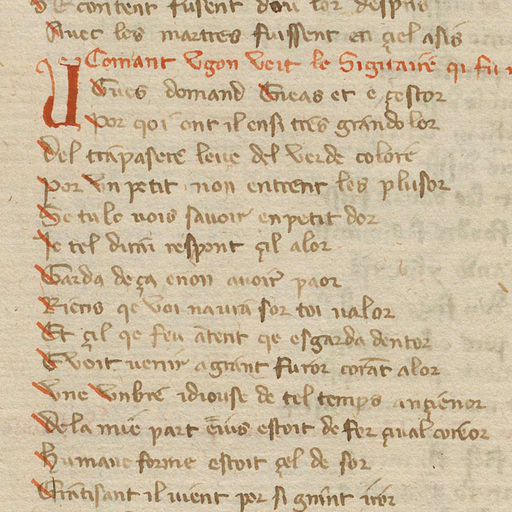 content fusent dou lor despris
Auec les martres fuissent en çiel asis
Comant Vgon veit le Sigitaire qi fu
Vgues domand Eneas et e çestor
Por qoi ont il ensi tres grando lor
Del trapasere leue del verde colore
Por vn petit non entrent les plusor
Se tu lo uois sauoir en petit dor
Je tel dirai respont çil alor
Garda de ça e non auoir paor
Riens qe voi naura sor toi ualor
Et çil qe feu atent qe esgarda dentor
E voit uenir a grant furor corant alor
Vne vnbre idiouse de tel temps ançienor
De la mie part estoit de fer çual coreor
Humane forme estoit çel de sor
Cratisant il uient por si graint iror